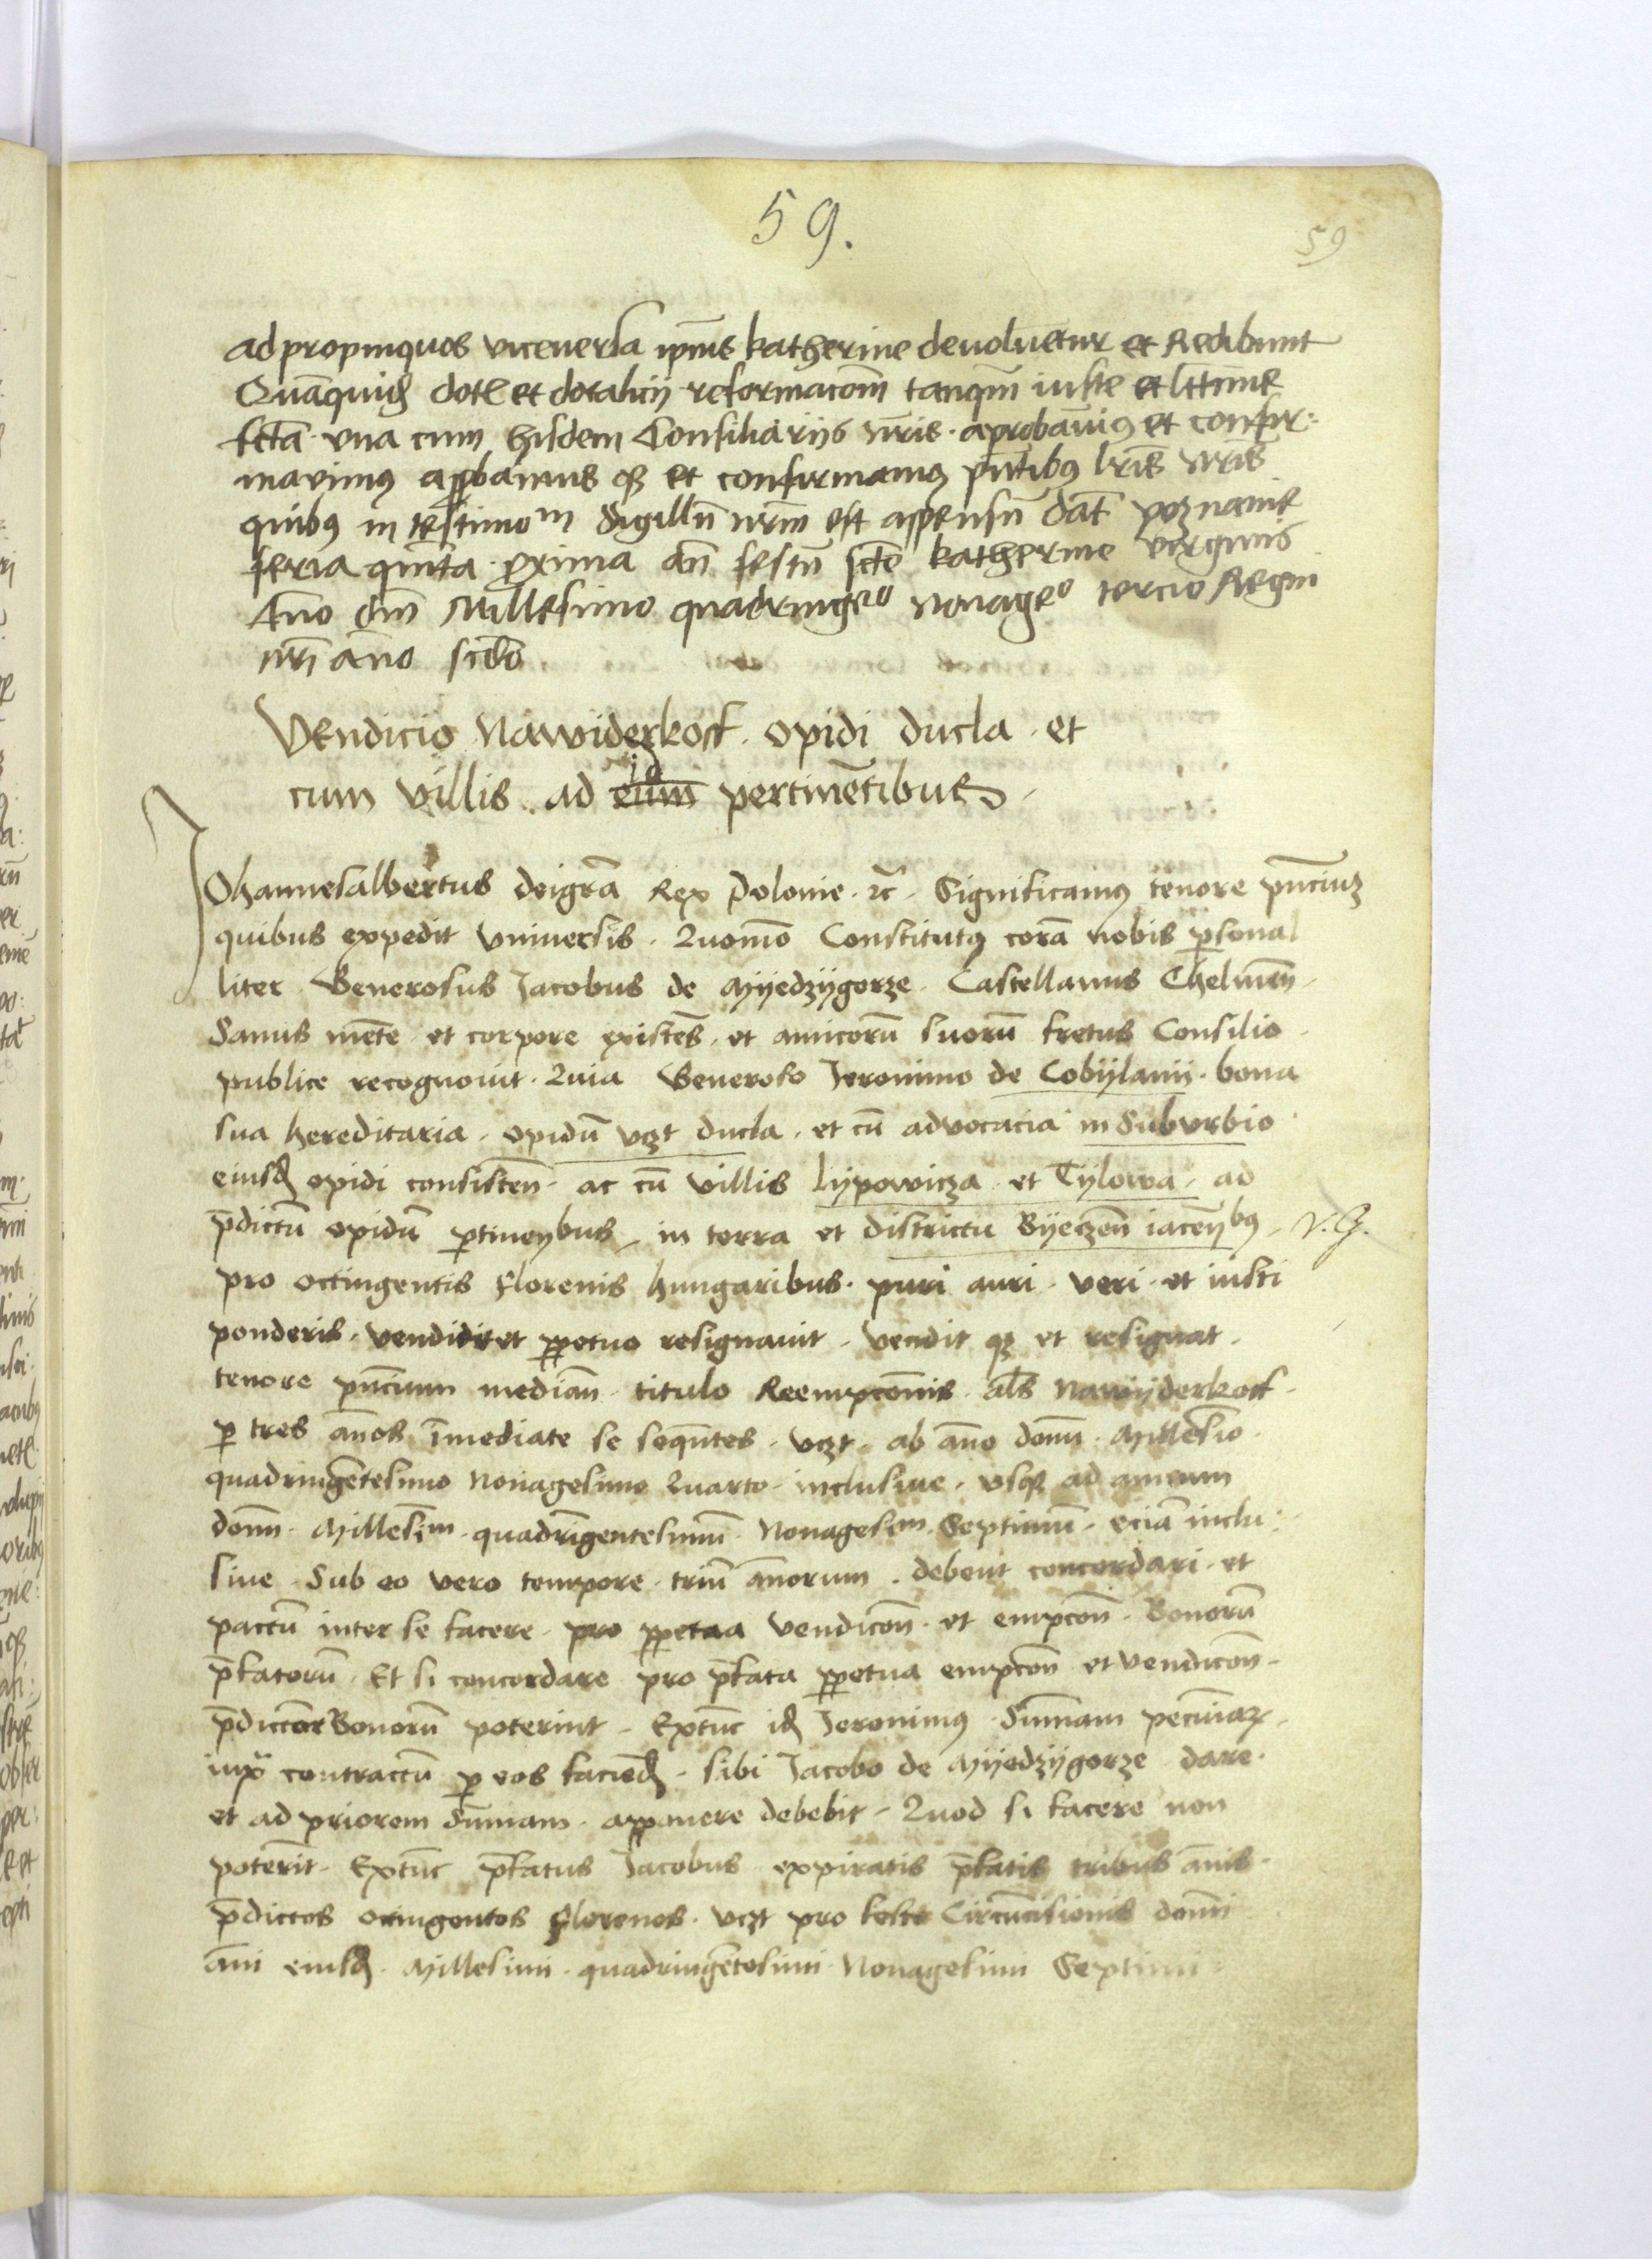 59.
59
ad propinquos viceversa ipīus katherine devolvetur et Redibunt
Quāquid dotl et dotalicij reformacōm tanqm iuste et lttime
fctā vna cum hisdem Consiliarijs nrīs aprobavimꝯ et confir:
mavimꝯ apꝓbamus qꝫ et confirmamꝯ pn̄tibꝯ lrīs nrīs
quibꝯ in testimom Sigillū nrm̄ est appensū dat̄ poznanie
feria quīta ꝓxima an̄ festū scte katherine virginis
Āno dm̄ Millesimo quadringeo Nonageo tercio Regni
nrī āno scdo
Vendicio Nawiderkoff opidi ducla et
cum villis ad id eum pertinētibus
Johannesalbertus deigrā Rex Polonie ꝛc̄ Significamꝯ tenore pn̄ciuꝫ
quibus expedit vniversis Quomō Constitutꝯ corā nobis ꝑsonal
liter Generosus Jacobus de Myedzygorze Castellanus Chelmen̄
Sanus mēte et corpore existēs et amicorū suorū fretus Consilio
publice recognovit Quia Generoso Jeronimo de Cobylanij bona
sua hereditaria opidū vꝫt ducla et cū advocacia in Suburbio
eiusd opidi consisten̄ ac cū villis Lypowicza et Tylowa ad
p̄dictū opidū ꝑtinenbus in terra et districtu Byeczen̄ iacenbꝯ
pro octingentis florenis hungaribus puri auri veri et iusti
ponderis vendidit et ꝑpetuo resignavit vendit qꝫ et resignat
tenore pn̄cium median̄ titulo Reempcōnis als Nawyderkoff
ꝑ tres ānos īmediate se seqūtes vꝫt ab āno domi Millesīo
quadringētesimo Nonagesimo Quarto inclusive vsqꝫ ad annum
domi Millesīm quadrīngentesimū Nonagesim Septimū eciā inclu:
sive Sub eo vero tempore triū ānorum debent concordari et
pactū inter se facere pro ꝑpetua vendicōn et empcōn Bonorū
p̄fatorū Et si concordare pro p̄fata ꝑpetua empcōn et vendicōn
p̄dictor Bonorū poterint Extūc id Jeronimꝯ Sūmam pecūiaꝝ
iuxa contractū ꝑ eos faciēd sibi Jacobo de Myedzygorze dare
et ad priorem Sūmam apponere debebit Quod si facere non
poterīt Extūc p̄fatus Jacobus expiratis p̄fatis tribus ānis
p̄dictos octingentos florenos vꝫt pro festo Circūcisionis domī
āni eiusd Millesimi quadringētesimi Nonagesimi Septimi